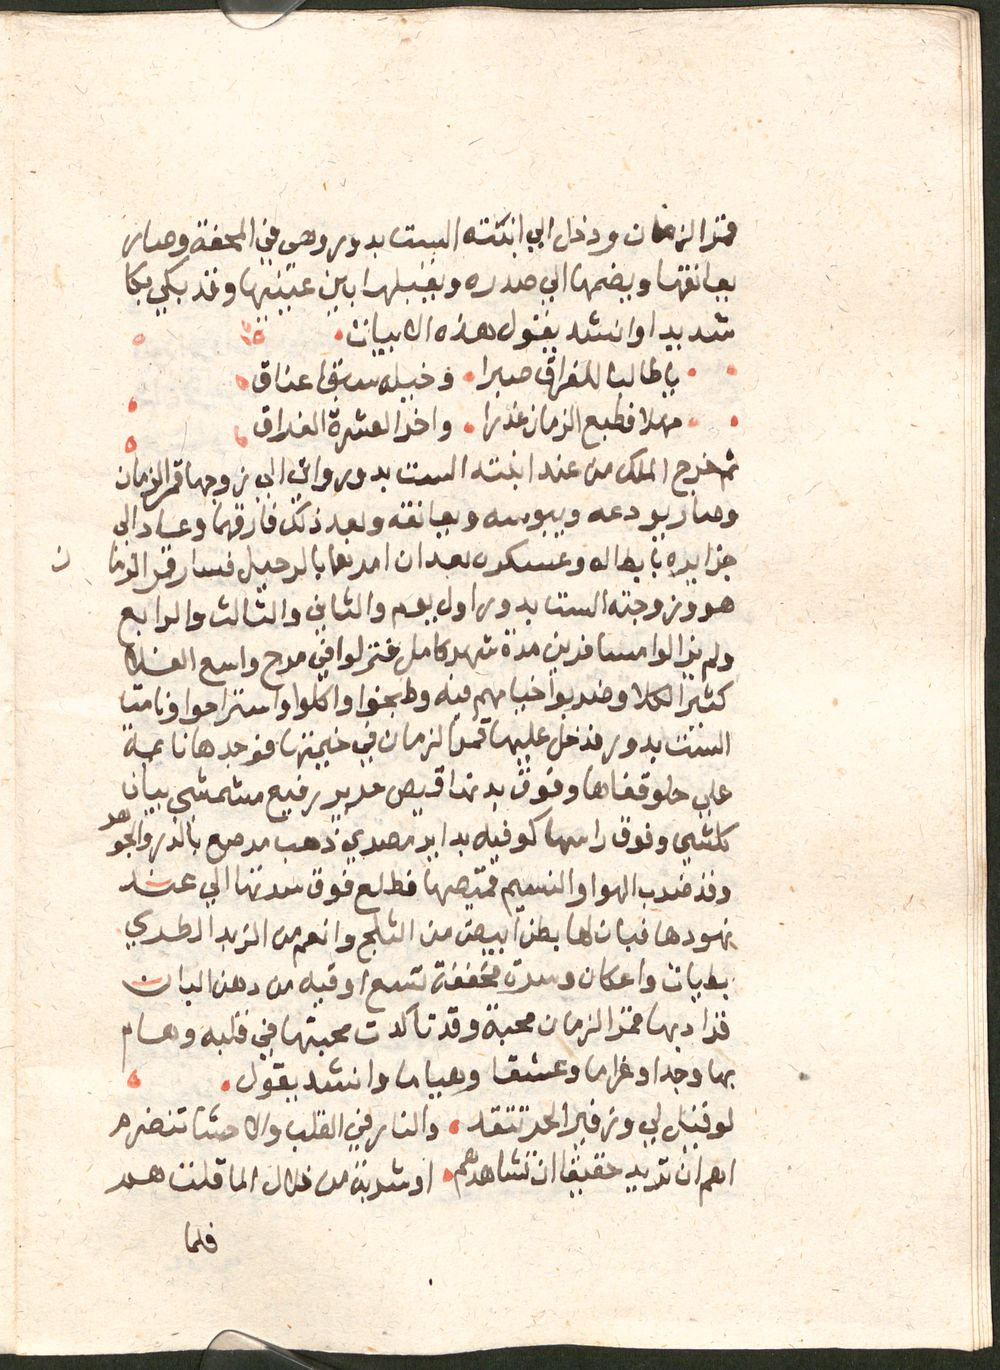 قمر الزمان ودخل الي ابنته الست بدور وهي في المحفة وصار
يعانقها ويضمها الي صدره ويقبلها بين عينيها وقد بكي بكا
شديدا وانشد يقول هذه الابيات
يا طالبا للفراق صبرا وحيله سبق اعناق
مهلا فطبع الزمان غدرا واخر العشرة الفراق
ثم خرج الملك من عند ابنته الست بدور واتي الي زوجها قمر الزمان
وصار يودعه ويبوسه ويعانقه وبعد ذلك فارقهما وعاد الي
جزايره بابطاله وعسكره بعد ان امرهما بالرحيل فسار قمر الزمان
هو وزوجته الست بدور اول يوم والثاني والثالث والرابع
ولم يزالوا مسافرين مدة شهر كامل فنزلوا في مرج واسع الفلا
كثير الكلا وضربوا خيامهم فيه وطبخوا واكلوا واستراحوا ونامت
الست بدور فدخل عليها قمر الزمان في خيمتها فوجدها نايمة
علي حلو قفاها وفوق بدنها قميص حرير رفيع مشمشي يبان
كلشي وفوق راسها كوفيه بداير مصري ذهب مرصع بالدر والجوهر
وقد ضرب الهوا والنسيم قميصها فطلع فوق سرتها الي عند
نهودها فبان لها بطن ابيض من الثلج وانعم من الزبد الطري
بطيات واعكان وسرة مخففة تسع اوقيه من دهن البان
فزاد بها قمر الزمان محبة وقد تاكدت محبتها في قلبه وهام
بها وجدا وغراما وعشقا وهياما وانشد يقول
لو قيل لي وزفير الحر تتقد والنار في القلب والاحشا تنضرم
اهم ان تريد حقيقا ان تشاهدهم او شربة من زلال الما قلت هم
فلما